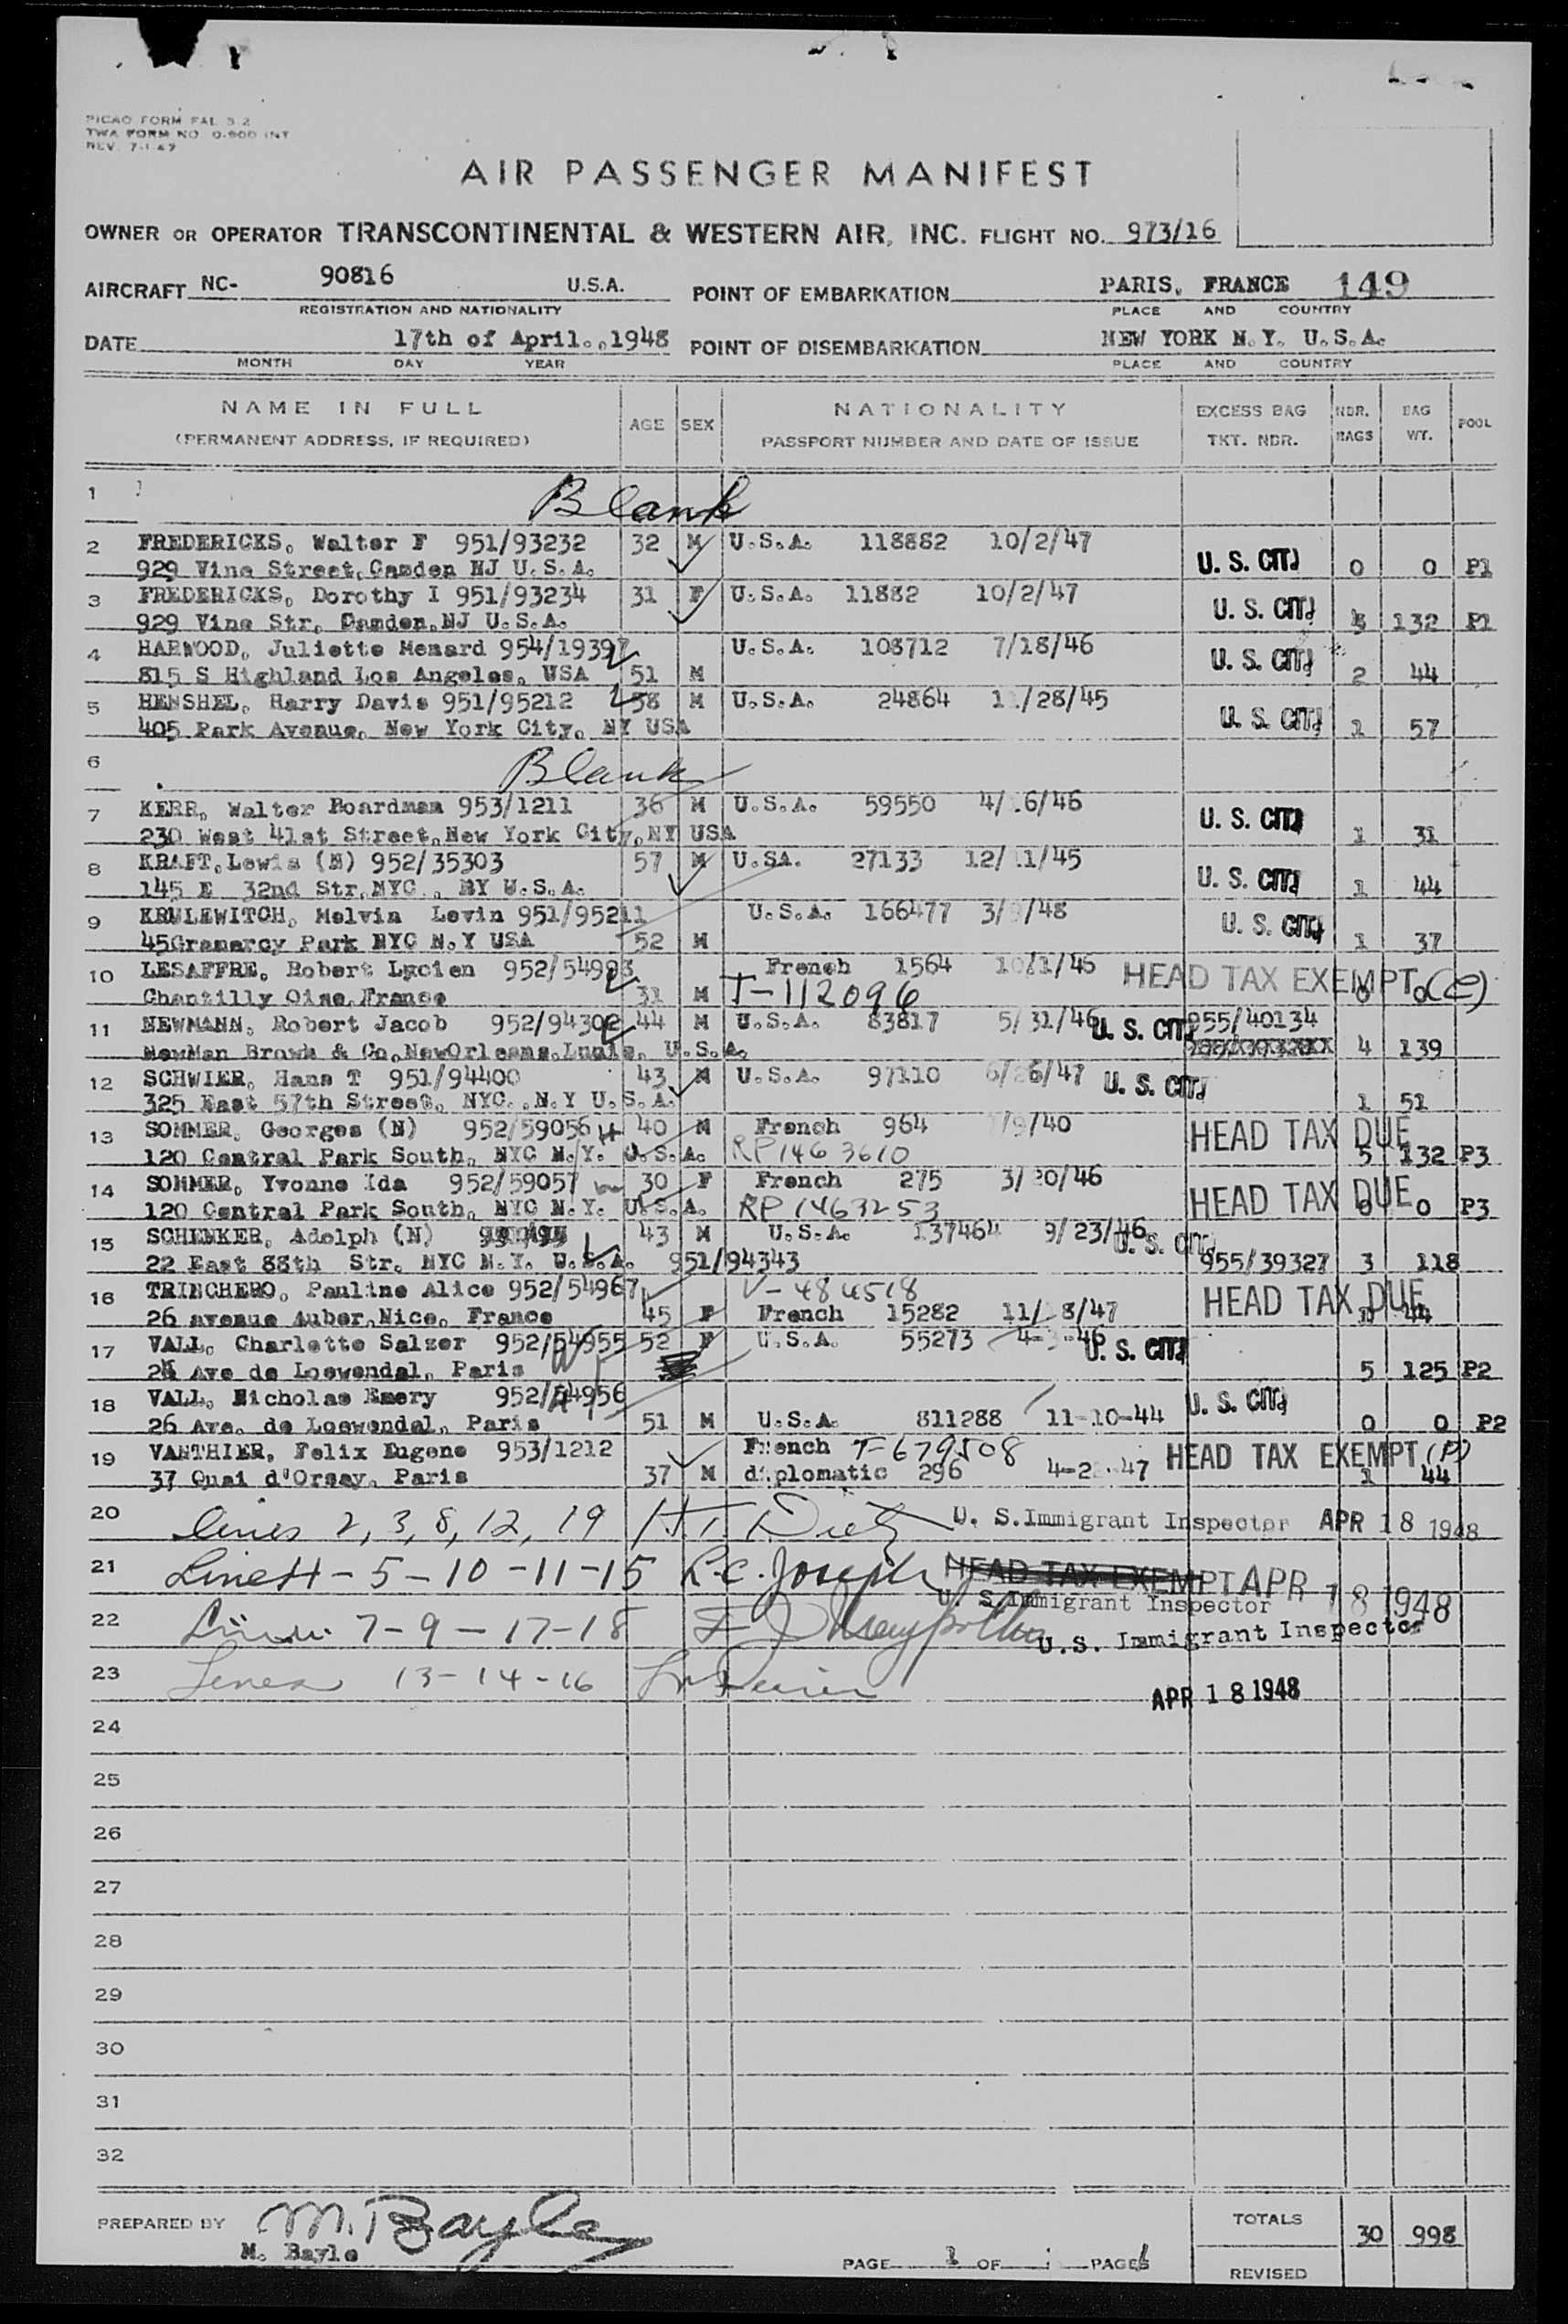 PICAO FORM FAL 3.2
TWA FORM NO. 0-800 INT
REV. 7-1-47
AIR PASSENGER MANIFEST
OWNER OR OPERATOR TRANSCONTINENTAL & WESTERN AIR, INC. FLIGHT NO. 973/16
AIRCRAFT NC- 90816 U.S.A. POINT OF EMBARKATION PARIS, FRANCE 149
REGISTRATION AND NATIONALITY PLACE AND COUNTRY
DATE 17th of April.,1948 POINT OF DISEMBARKATION NEW YORK N.Y. U.S.A.
MONTH DAY YEAR PLACE AND COUNTRY
NAME IN FULL AGE SEX NATIONALITY EXCESS BAG NBR. BAG POOL
(PERMANENT ADDRESS, IF REQUIRED) PASSPORT NUMBER AND DATE OF ISSUE TKT. NBR. BAGS WT.
1 Blank
2 FREDERICKS, Walter F 951/93232 32 M U.S.A. 118882 10/2/47
929 Vine Street, Camden NJ U.S.A. U. S. CIT. 0 0 P1
3 FREDERICKS, Dorothy I 951/93234 31 F U.S.A. 11882 10/2/47
929 Vine Str, Camden, NJ U.S.A. U. S. CIT. 5 132 P1
4 HARWOOD, Juliette Menard 954/19397 U.S.A. 108712 7/18/46
815 S Highland Los Angeles, USA 51 M U. S. CIT. 2 44
5 HENSHEL, Harry Davis 951/95212 58 M U.S.A. 24864 /28/45
405 Park Avenue, New York City, NY USA U. S. CIT. 1 57
6 Blank
7 KERR, Walter Boardman 953/1211 36 M U.S.A. 59550 4/ 6/46
230 West 41st Street, New York City, NY USA U. S. CIT. 1 31
8 KRAFT, Lewis (N) 952/35303 57 M U.SA. 27133 12/ 1/45
145 E 32nd Str, NYC., NY U.S.A. U. S. CIT. 1 44
9 KRULEWITCH, Melvin Levin 951/95211 U.S.A. 166477 3/9/48
45Gramercy Park NYC N.Y USA 52 M U. S. CIT. 1 37
10 LESAFFRE, Robert Lucien 952/54993 French 1564 10/1/45 HEAD TAX EXEMPT (C)
Chantilly Oise, France 31 M T-112096 0 0
11 NEWMANN, Robert Jacob 952/94302 44 M U.S.A. 83817 5/31/46 U. S. CIT. 955/40134
NewMan Brown & Co, NewOrleans, U.S.A. 4 139
12 SCHWIER, Hans T 951/94400 43 M U.S.A. 97110 6/26/47 U. S. CIT.
325 East 57th Street, NYC., N.Y U.S.A. 1 51
13 SOMMER, Georges (N) 952/59056 40 M French 964 /9/40 HEAD TAX DUE
120 Central Park South, NYC N.Y. U.S.A. RP1463610 5 132 P3
14 SOMMER, Yvonne Ida 952/59057 30 F French 275 3/20/46
120 Central Park South, NYC N.Y. U.S.A. RP1463253 HEAD TAX DUE 0 0 P3
15 SCHENKER, Adolph (N) 43 M U.S.A. 137464 9/23/46 U. S. CIT.
22 East 88th Str, NYC N.Y. U.S.A. 951/94343 955/39327 3 118
16 TRINCHERO, Pauline Alice 952/54967 V-484518 HEAD TAX DUE
26 avenue Auber, Nice, France 45 F French 15282 11/18/47 44
17 VALL, Charlotte Salzer 952/54955 52 F U.S.A. 55273 4- -46 U. S. CIT.
Ave de Loewendal, Paris 5 125 P2
18 VALL, Nicholas Emery 952/54956 U. S. CIT.
26 Ave. de Loewendal, Paris 51 M U.S.A. 811288 11-10-44 0 0 P2
19 VANTHIER, Felix Eugene 953/1212 French T-679508 HEAD TAX EXEMPT (P)
37 Quai d'Orsay, Paris 37 M diplomatic 296 4-2 -47 1 44
20 Lines 2, 3, 8, 12, 19 H. T. Dietz U. S. Immigrant Inspector APR 18 1948
21 Lines 4 - 5 - 10 - 11 - 15 R.C. Joseph HEAD TAX EXEMPT APR 18 1948
U. S. Immigrant Inspector
22 Lines 7 - 9 - 17 - 18 U.S. Immigrant Inspector
23 Lines 13 - 14 - 16 APR 18 1948
24
25
26
27
28
29
30
31
32
PREPARED BY M. Bayle TOTALS 30 998
M. Bayle
PAGE 1 OF PAGES REVISED